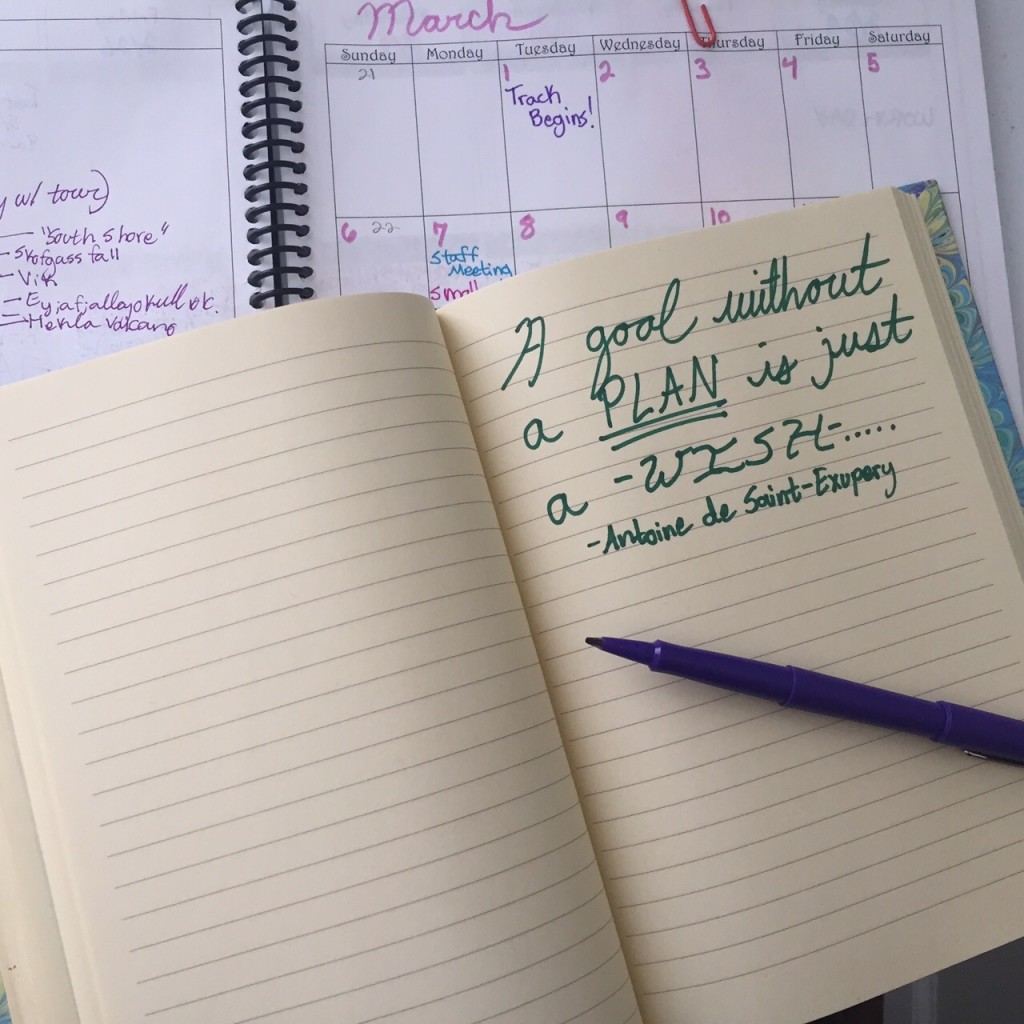 March
Sunday Monday Tuesday Wednesday Thursday Friday Saturday
21 1 2 3 4 5
Track
Begins!
6 22 7 8 9 10
Staff
Meeting
Small
w/ tour)
"South Shore"
Skofgass fall
- Vik
- Eyjafjallajokull
- Hekla Volcano
A goal without
a PLAN is just
a - WISH-.....
-Antoine de Saint-Exupery